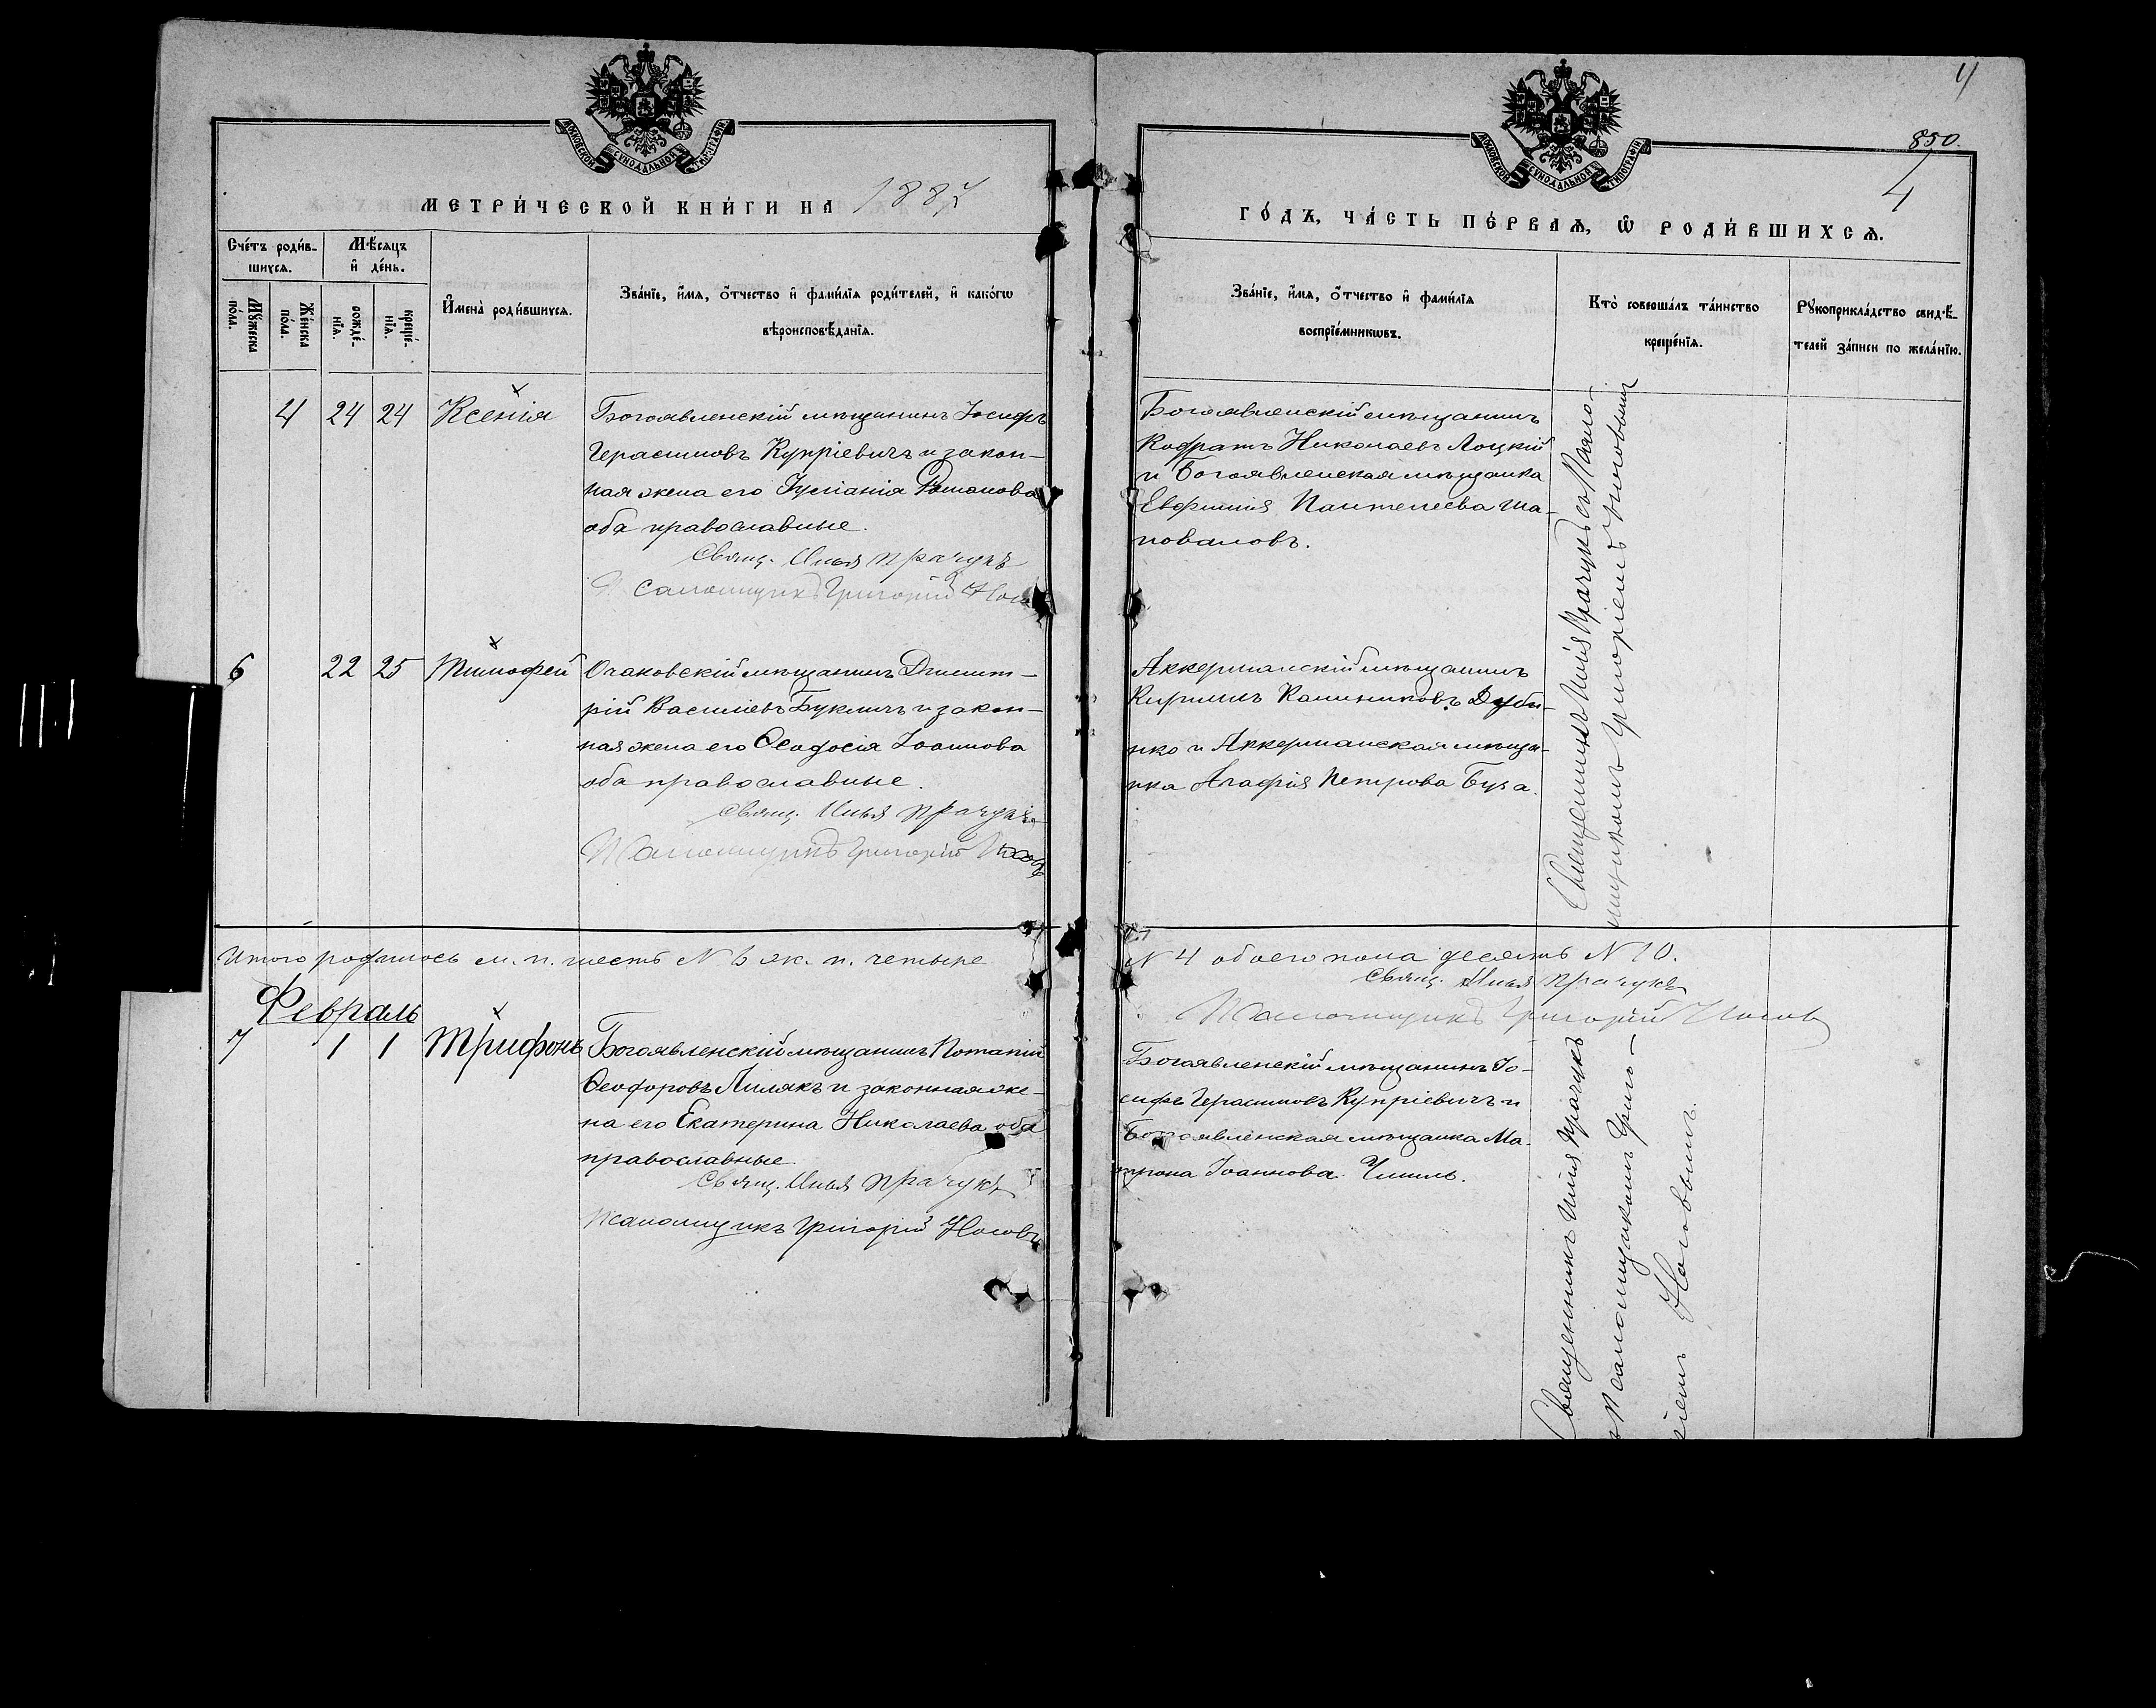 4
850.
4
МОСКОВСКОЙ СѴНОДАЛЬНОЙ ТИПОГРАФІИ
МОСКОВСКОЙ СѴНОДАЛЬНОЙ ТИПОГРАФІИ
МЕТРИ́ЧЕСКОЙ КНИ́ГИ НА 1887
ГО́ДЪ, ЧА́СТЬ ПЕ́РВАѦ, Ѿ РОДИ́ВШИХСѦ.
Сче́тъ роди́в-
шихсѧ.
Мѣ́сѧцъ
и де́нь.
Мꙋ́жеска
по́ла.
Же́нска
по́ла.
рожде́-
нїѧ.
креще́-
нїѧ.
Имена̀ роди́вшихсѧ.
Зва́нїе, и́мѧ, о́тчество и фами́лїѧ роди́телей, и како́гѡ
вѣроисповѣ́данїѧ.
Зва́нїе, и́мѧ, о́тчество и фами́лїѧ
воспрїе́мникѡвъ.
Кто̀ соверша́лъ та́инство
креще́нїѧ.
Рꙋкоприкла́дство свидѣ́-
телей за́писи по жела́нїю.
4 24 24 Ксенія
Богоявленскій мѣщанинъ Іосифъ
Герасимовъ Купріевичъ и закон-
ная жена его Іуліанія Романова
оба православные.
Свящ. Илья Прачукъ
Псаломщикъ Григорій
Богоявленскій мѣщанинъ
Кодратъ Николаевъ Лоцкій
и Богоявленская мѣщанка
Евфимія Пантелеева Ша-
поваловъ.
Священникъ Илія Прачукъ съ Псало-
мщикомъ Григоріемъ Носовымъ
6 22 25 Тимофей
Очаковскій мѣщанинъ Димит-
рій Василіевъ Букличъ и закон-
ная жена его Ѳеодосія Іоаннова
оба православные.
Свящ. Илья Прачукъ
Псаломщикъ Григорій Носовъ
Аккерманскій мѣщанинъ
Кириллъ Калиниковъ Дуби-
нко и Аккерманская мѣща-
нка Агафія Петрова Буга.
Итого родилось м. п. шесть N 6 ж. п. четыре
N 4 обоего пола десять N 10.
Свящ. Илья Прачукъ
Псаломщикъ Григорій Носовъ
Февраль
7 1 1 Трифонъ
Богоявленскій мѣщанинъ Потапій
Ѳеодоровъ Лилякъ и законная же-
на его Екатерина Николаева оба
православные.
Свящ. Илья Прачукъ
Псаломщикъ Григорій Носовъ
Богоявленскій мѣщанинъ Іо-
сифъ Герасимовъ Купріевичъ и
Богоявленская мѣщанка Ма-
трона Іоаннова Чмиль.
Священникъ Илія Прачукъ
съ Псаломщикомъ Григо-
ріемъ Носовымъ.